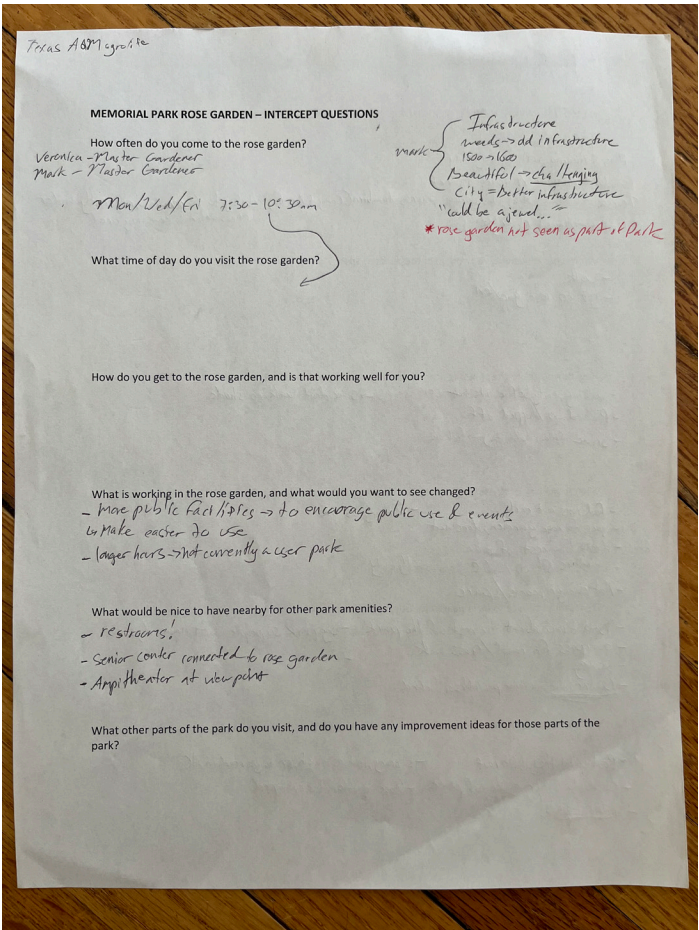 Texas A&M agrolife
MEMORIAL PARK ROSE GARDEN – INTERCEPT QUESTIONS
How often do you come to the rose garden?
Veronica - Master Gardener
Mark - Master Gardener
Mon/Wed/Fri 7:30 - 10:30am
Mark
Infrastructure
needs → add infrastructure
1500 → 1600
Beautiful → challenging
City = Better infrastructure
"could be a jewel..."
* rose garden not seen as part of Park
What time of day do you visit the rose garden?
How do you get to the rose garden, and is that working well for you?
What is working in the rose garden, and what would you want to see changed?
- More public facilities → to encourage public use & events
↳ Make easier to use
- longer hours → not currently a user park
What would be nice to have nearby for other park amenities?
- restrooms!
- Senior center connected to rose garden
- Ampitheator at viewpoint
What other parts of the park do you visit, and do you have any improvement ideas for those parts of the
park?